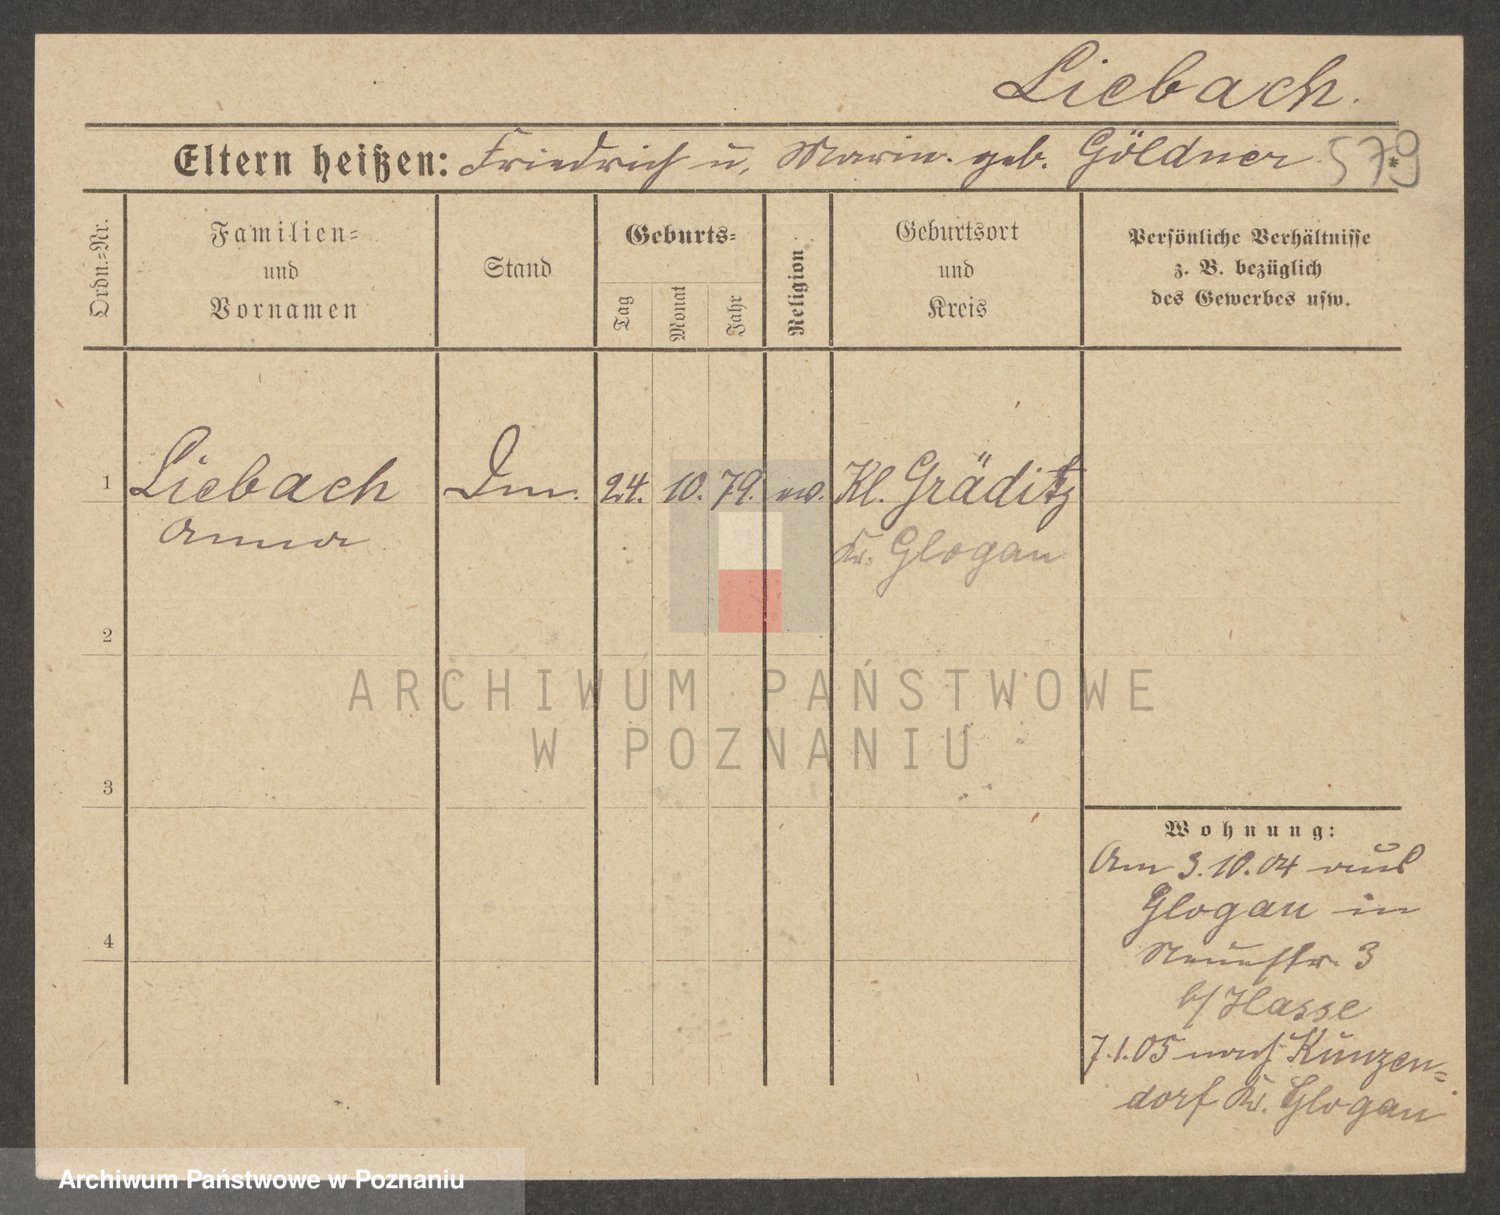 Liebach.
Eltern heißen: Friedrich u. Marie. geb. Göldner 579
Ordn.-Nr.
Familien-
und
Vornamen
Stand
Geburts-
Tag
Monat
Jahr
Religion
Geburtsort
und
Kreis
Persönliche Verhältnisse
z. B. bezüglich
des Gewerbes usw.
1 Liebach 24. 10. 79. ev. Kl. Gräditz
Anna Kr. Glogau
2
3
4
ARCHIWUM PAŃSTWOWE
W POZNANIU
Wohnung:
Am 3.10.04 aus
Glogau in
Neuestr. 3
b/ Hasse
7.1.05 nach Kunzen-
dorf Kr. Glogau
Archiwum Państwowe w Poznaniu